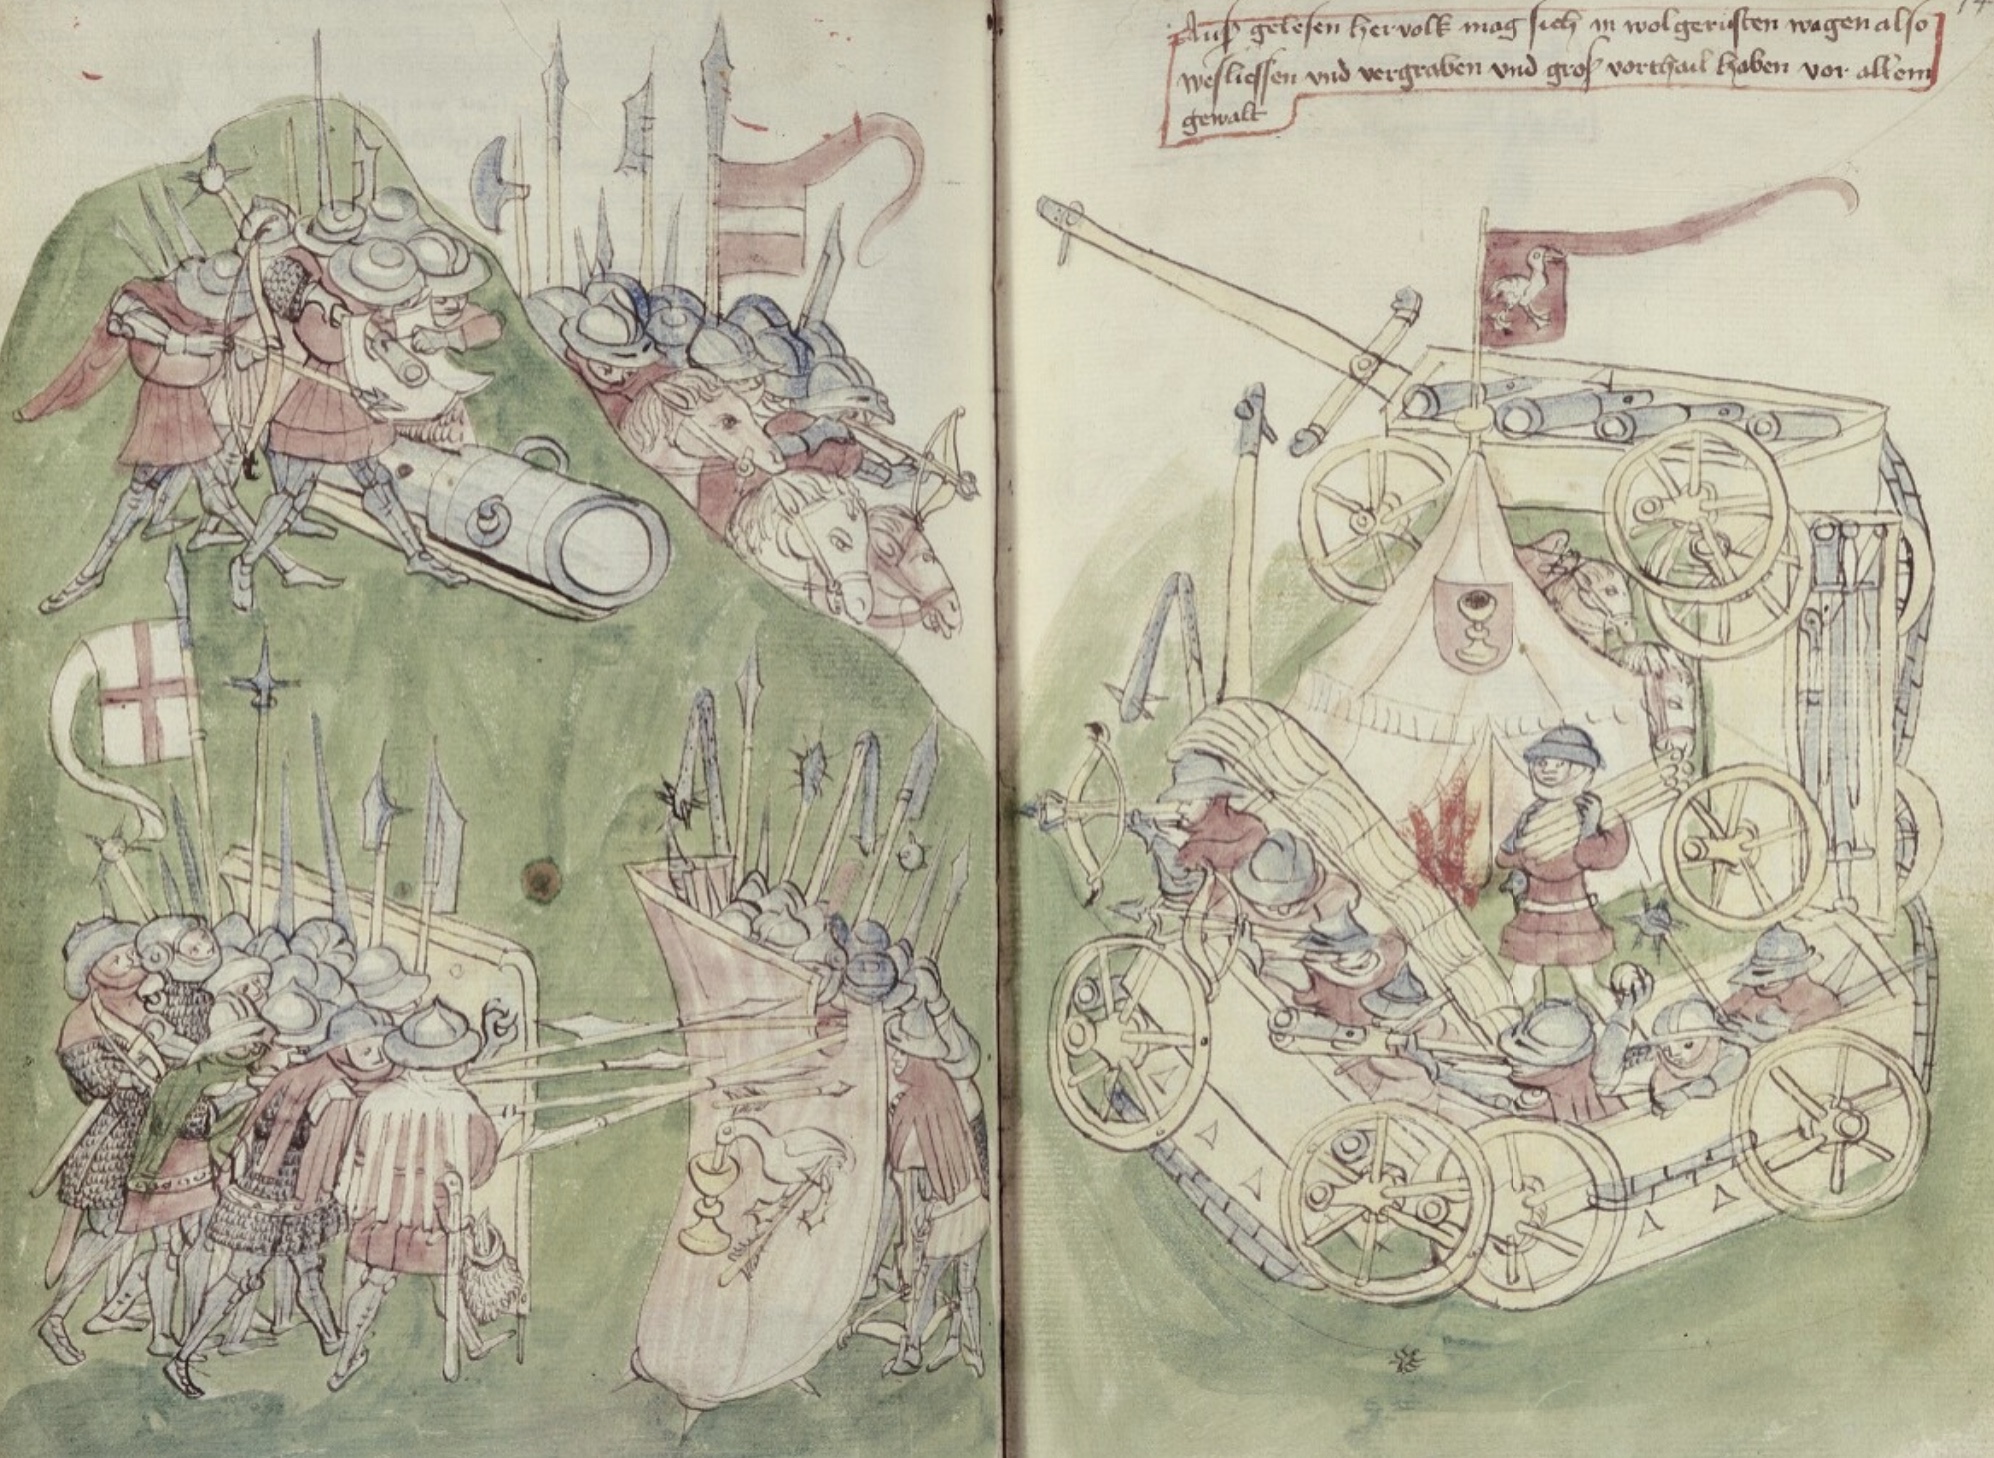 Auß gelesen hervolk mag sich in wolgerüsten wagen also
wesliessen vnd vergraben vnd groß vorthail haben vor allem
gewalt